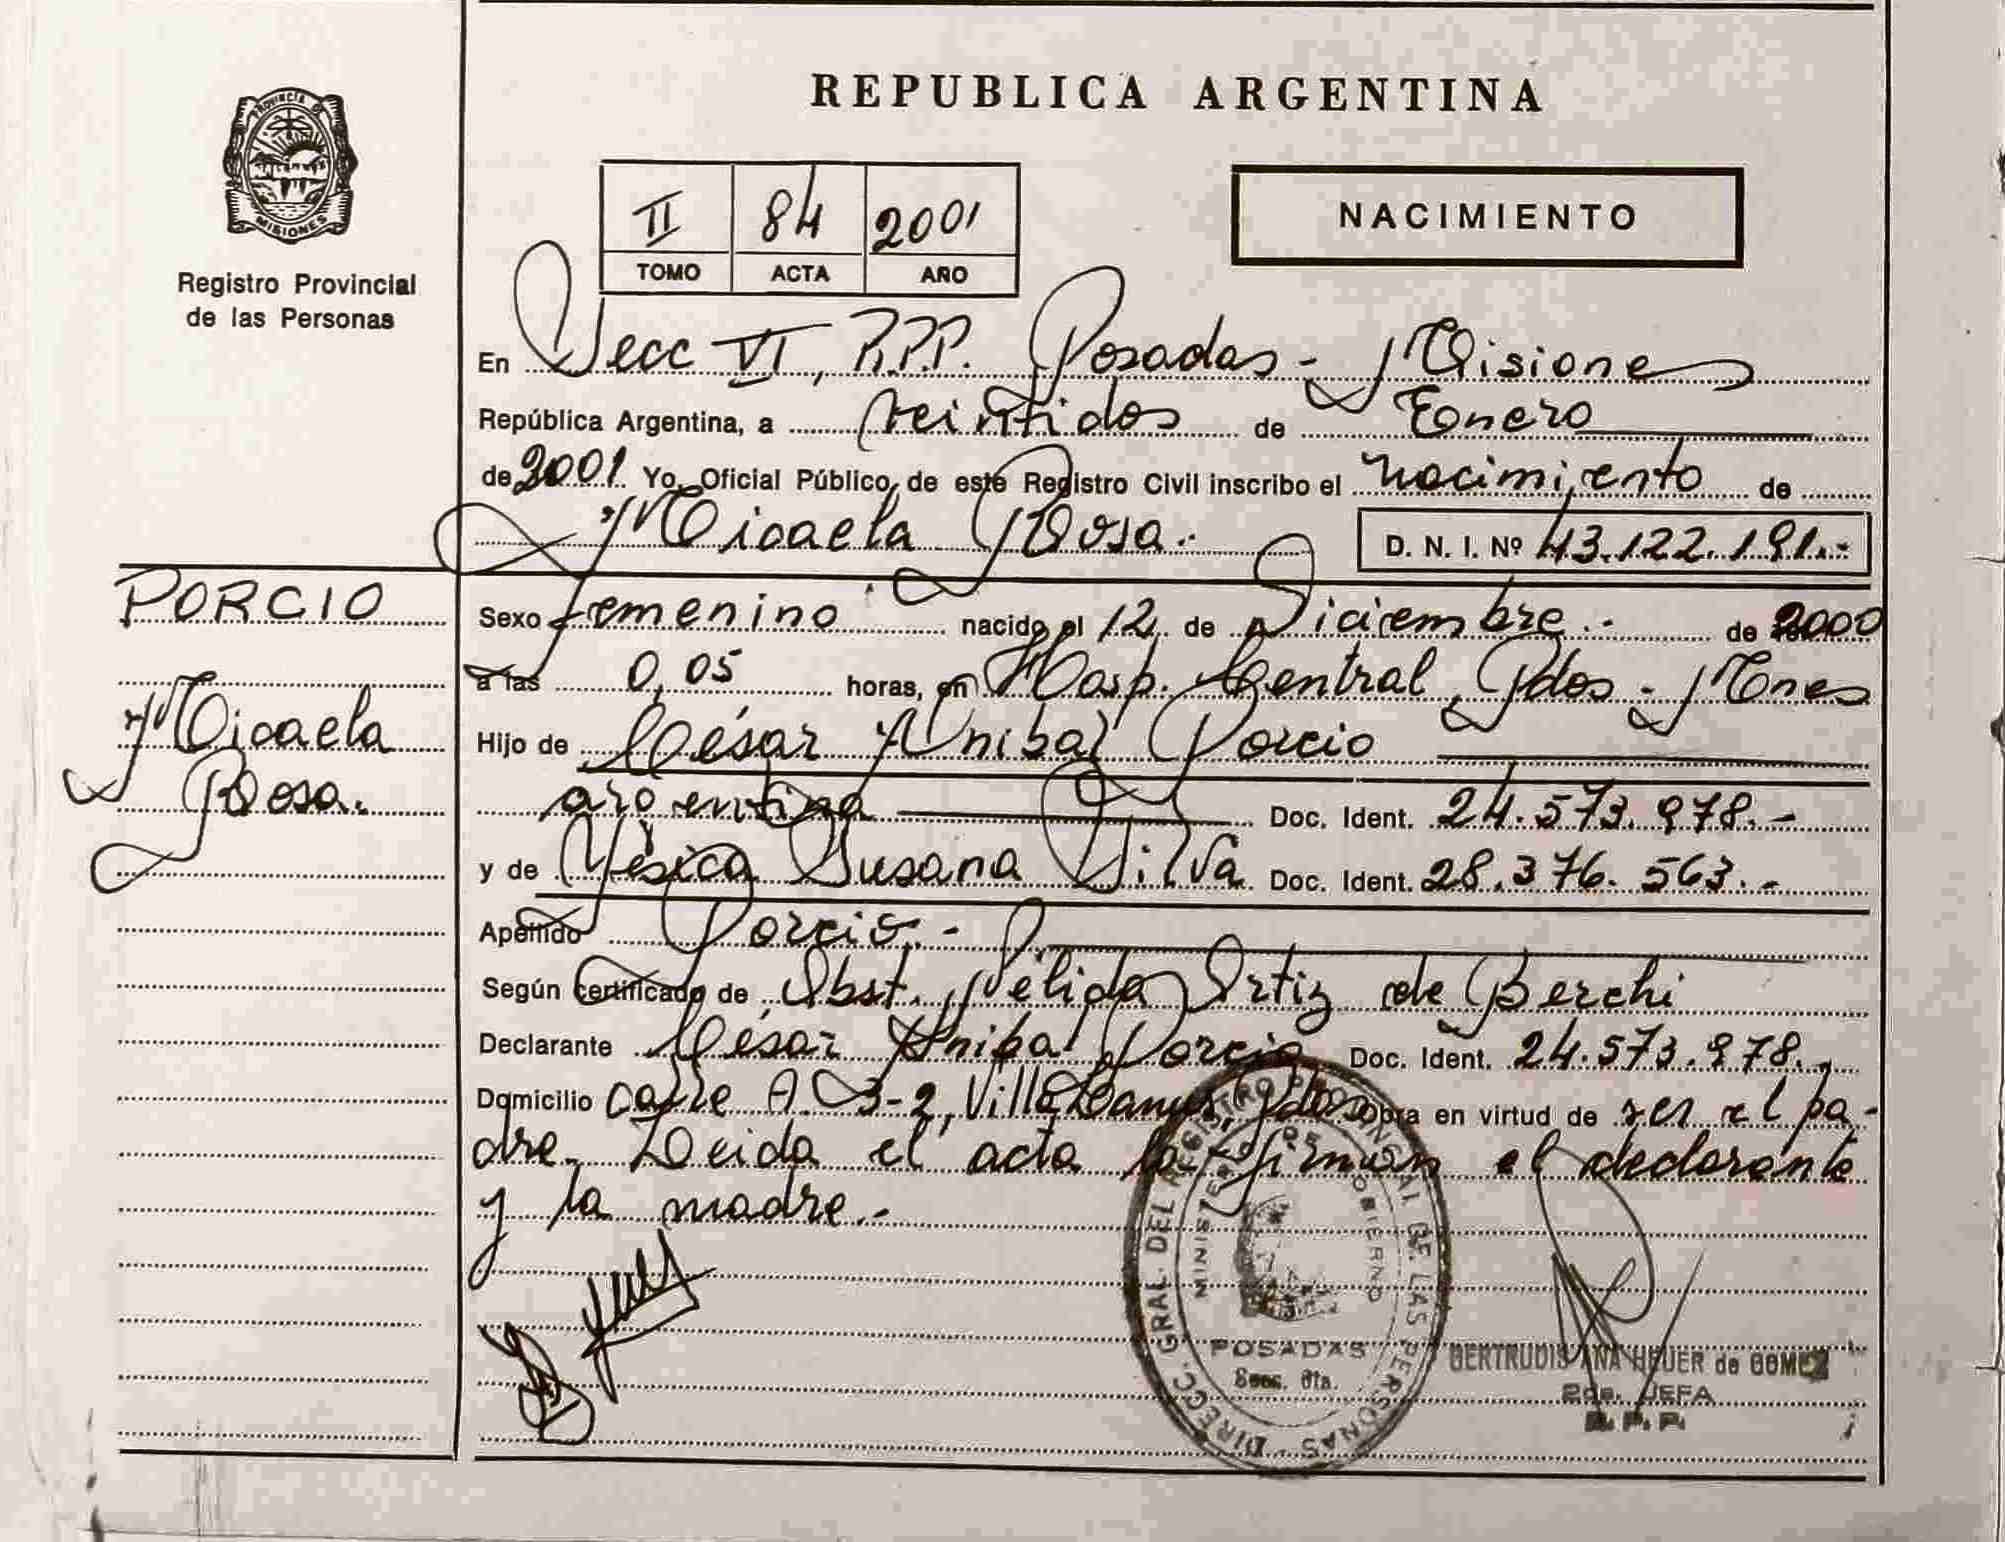 PROVINCIA DE
MISIONES
Registro Provincial
de las Personas
REPUBLICA ARGENTINA
II 84 2001
TOMO ACTA AÑO
NACIMIENTO
En Secc VI, R.P.P. Posadas - Misiones
República Argentina, a veintidos de Enero
de 2001 Yo, Oficial Público, de este Registro Civil inscribo el nacimiento de
Micaela Rosa.-
D. N. I. Nº 43.122.191.-
PORCIO
Micaela
Rosa.
Sexo femenino nacido el 12 de Diciembre.- de 2000
a las 0,05 horas, en Hosp. Central, Pdas - Mnes
Hijo de César Anibal Porcio
argentina Doc. Ident. 24.573.978.-
y de Yésica Susana Silva Doc. Ident. 28.376.563.-
Apellido Porcio.-
Según certificado de Obst. Nélida Ortiz de Berchi
Declarante César Anibal Porcio Doc. Ident. 24.573.978.-
Domicilio calle A. 3-2, Villa Pdas obra en virtud de ser el pa-
dre. Leida el acta la firman el declarante
y la madre.-
DIRECC. GRAL. DEL REGISTRO PROVINCIAL DE LAS PERSONAS
MINISTERIO DE GOBIERNO
POSADAS
Secc. 6ta.
GERTRUDIS ANA HEUER de GOMEZ
2da. JEFA
R. P. P.